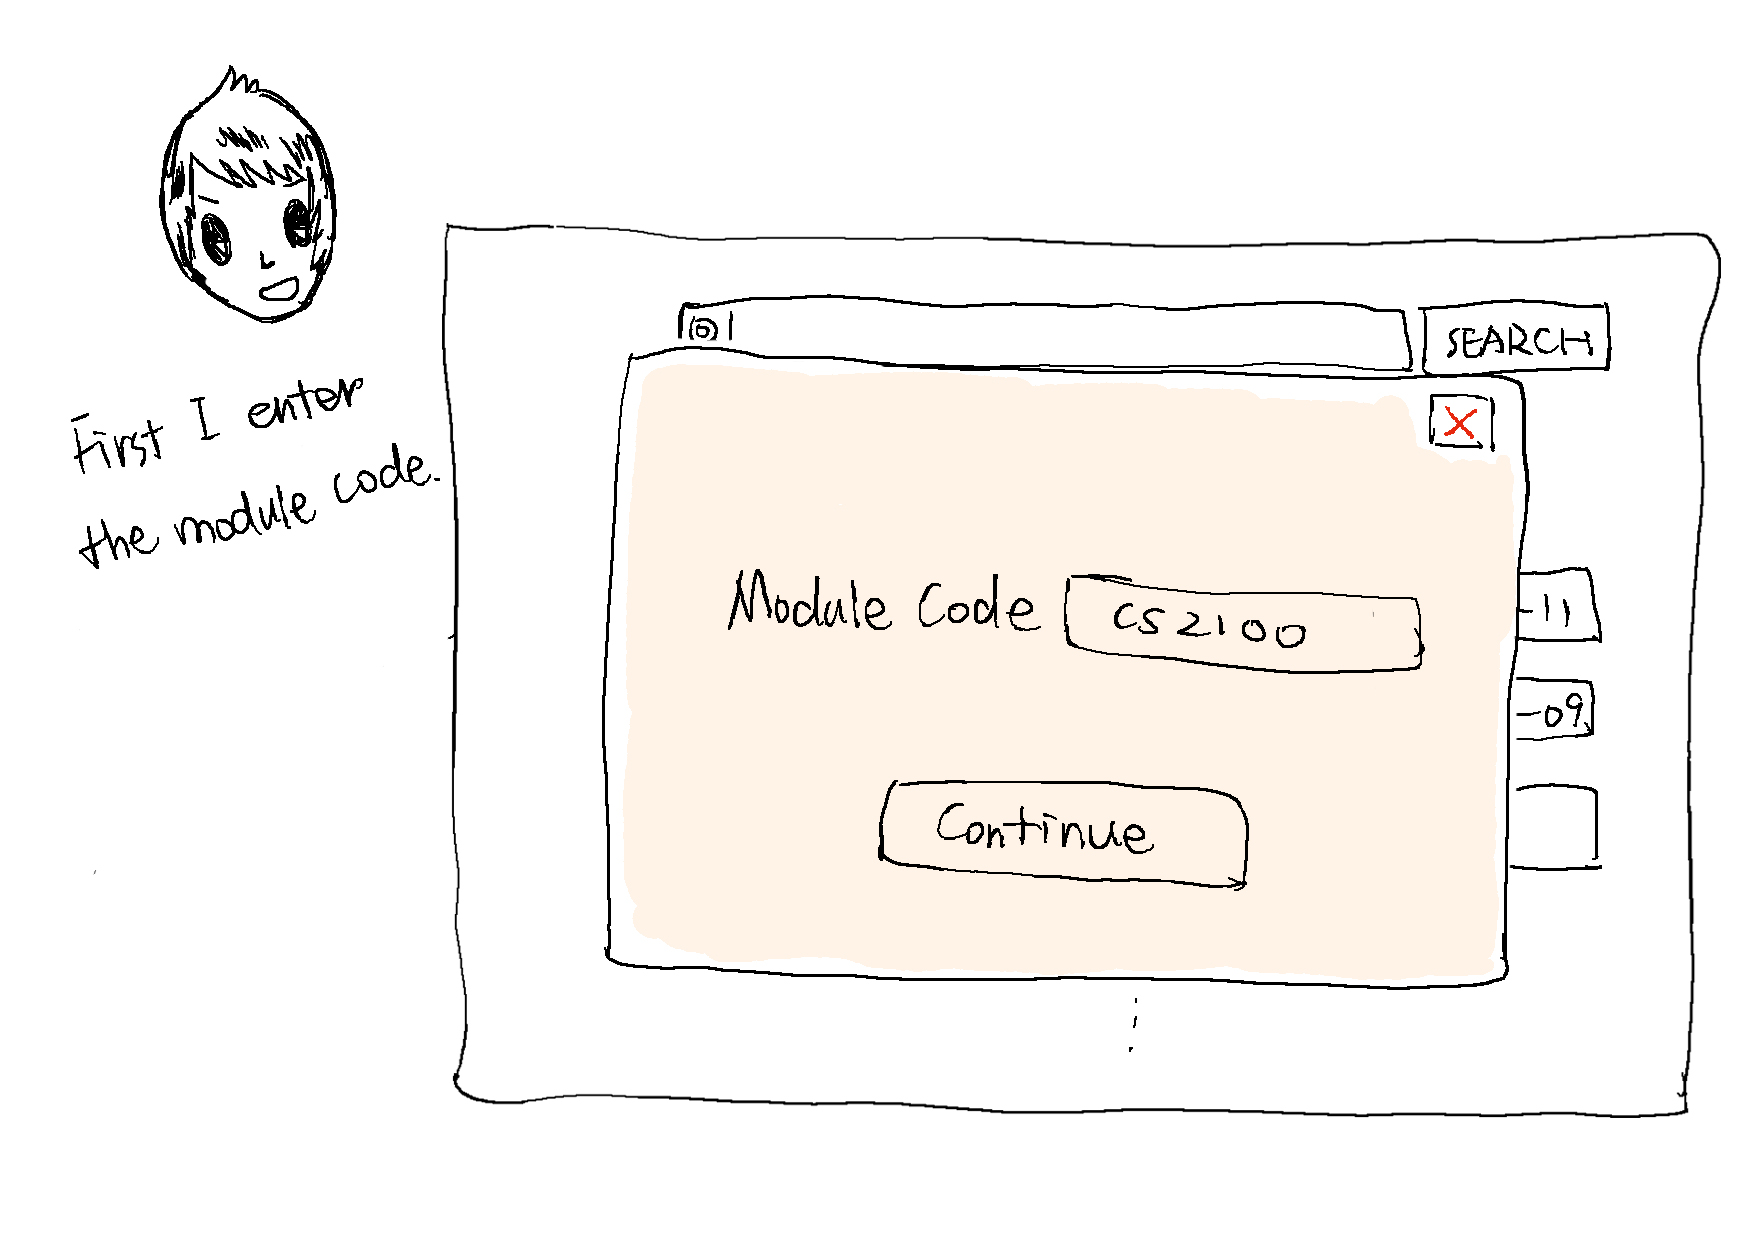 First I enter
the module code.
SEARCH
X
Module Code CS2100
-11
-09
Continue